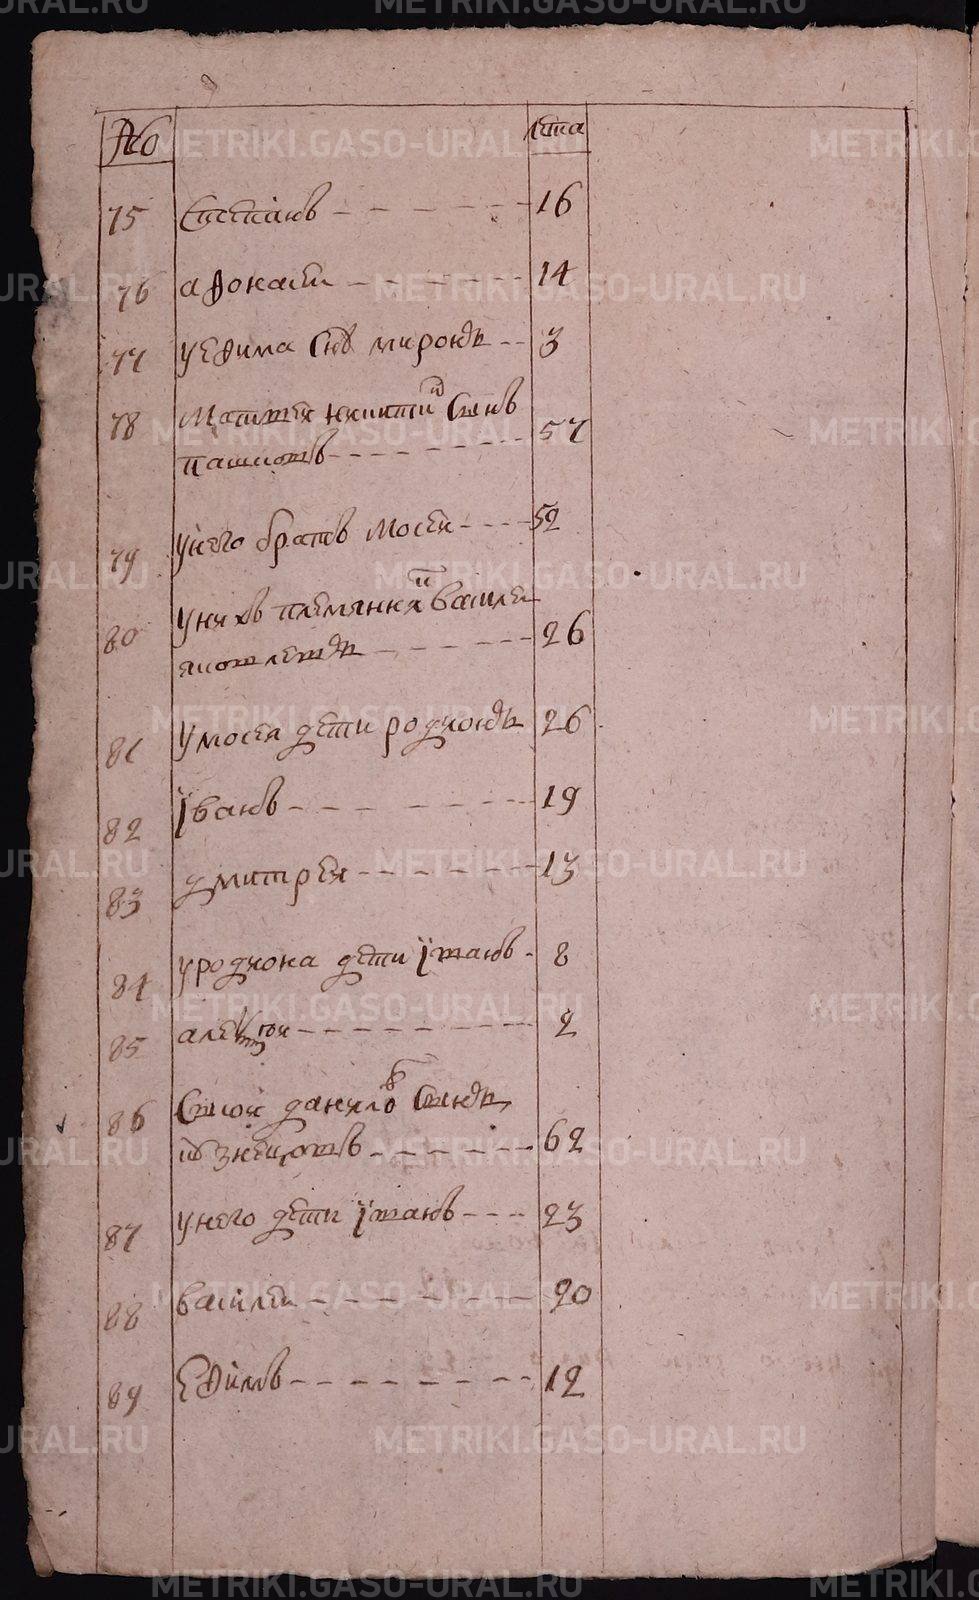 № лета
75 Степанъ 16
76 афонасеи 14
77 у ефима снъ миронъ 3
78 Матвеи никитинъ сынъ
пашковъ 57
79 у него братъ мосеи 52
80 у нихъ племянникъ василеи
яковлевъ 26
81 у мосея дети родионъ 26
82 їванъ 19
83 дмитреи 13
84 у родиона дети їванъ 8
85 алексеи 2
86 данило сынъ
кузнецовъ 62
87 у него дети їванъ 23
88 василеи 20
89 ефимъ 12
METRIKI.GASO-URAL.RU